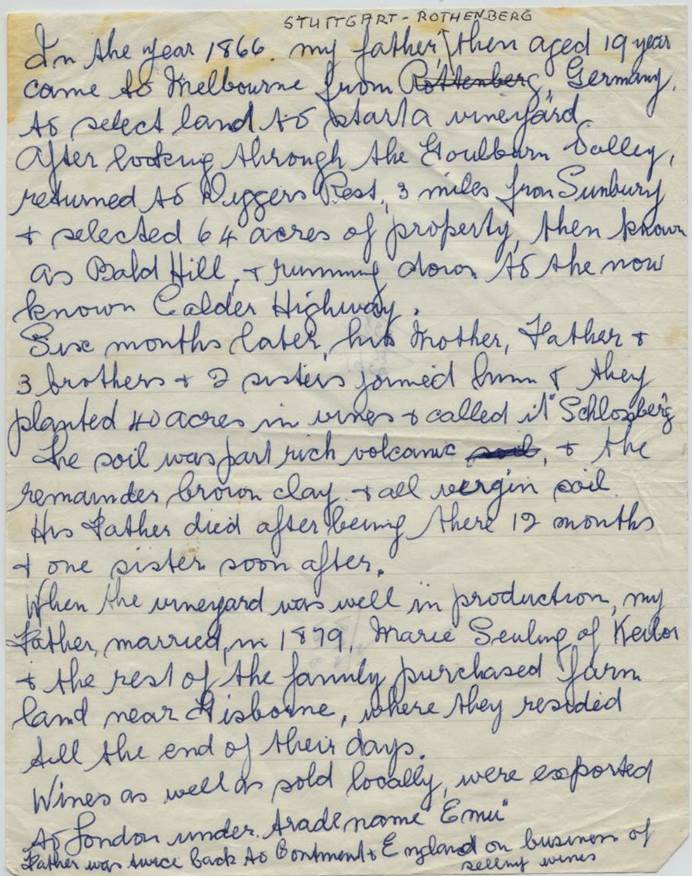 STUTTGART - ROTHENBERG
In the year 1866. my father, then aged 19 year
came to Melbourne from Rottenberg, Germany,
to select land to start a vineyard.
After looking through the Goulburn Valley,
returned to Diggers Rest, 3 miles from Sunbury
+ selected 64 acres of property, then known
as Bald Hill, + running down to the now
known Calder Highway.
Six months later, his Mother, Father +
3 brothers + 2 sisters joined him & they
planted 40 acres in vines + called it "Schlossberg"
The soil was part rich volcanic soil, + the
remainder brown clay + all vergin soil.
His Father died after being there 12 months
+ one sister soon after.
When the vineyard was well in production, my
Father, married, in 1879, Marie Seuling of Keilor
+ the rest of the family purchased farm
land near Gisborne, where they resided
till the end of their days.
Wines as well as sold locally, were exported
to London under trade name "Emu"
Father was twice back to Continent + England on business of
selling wines